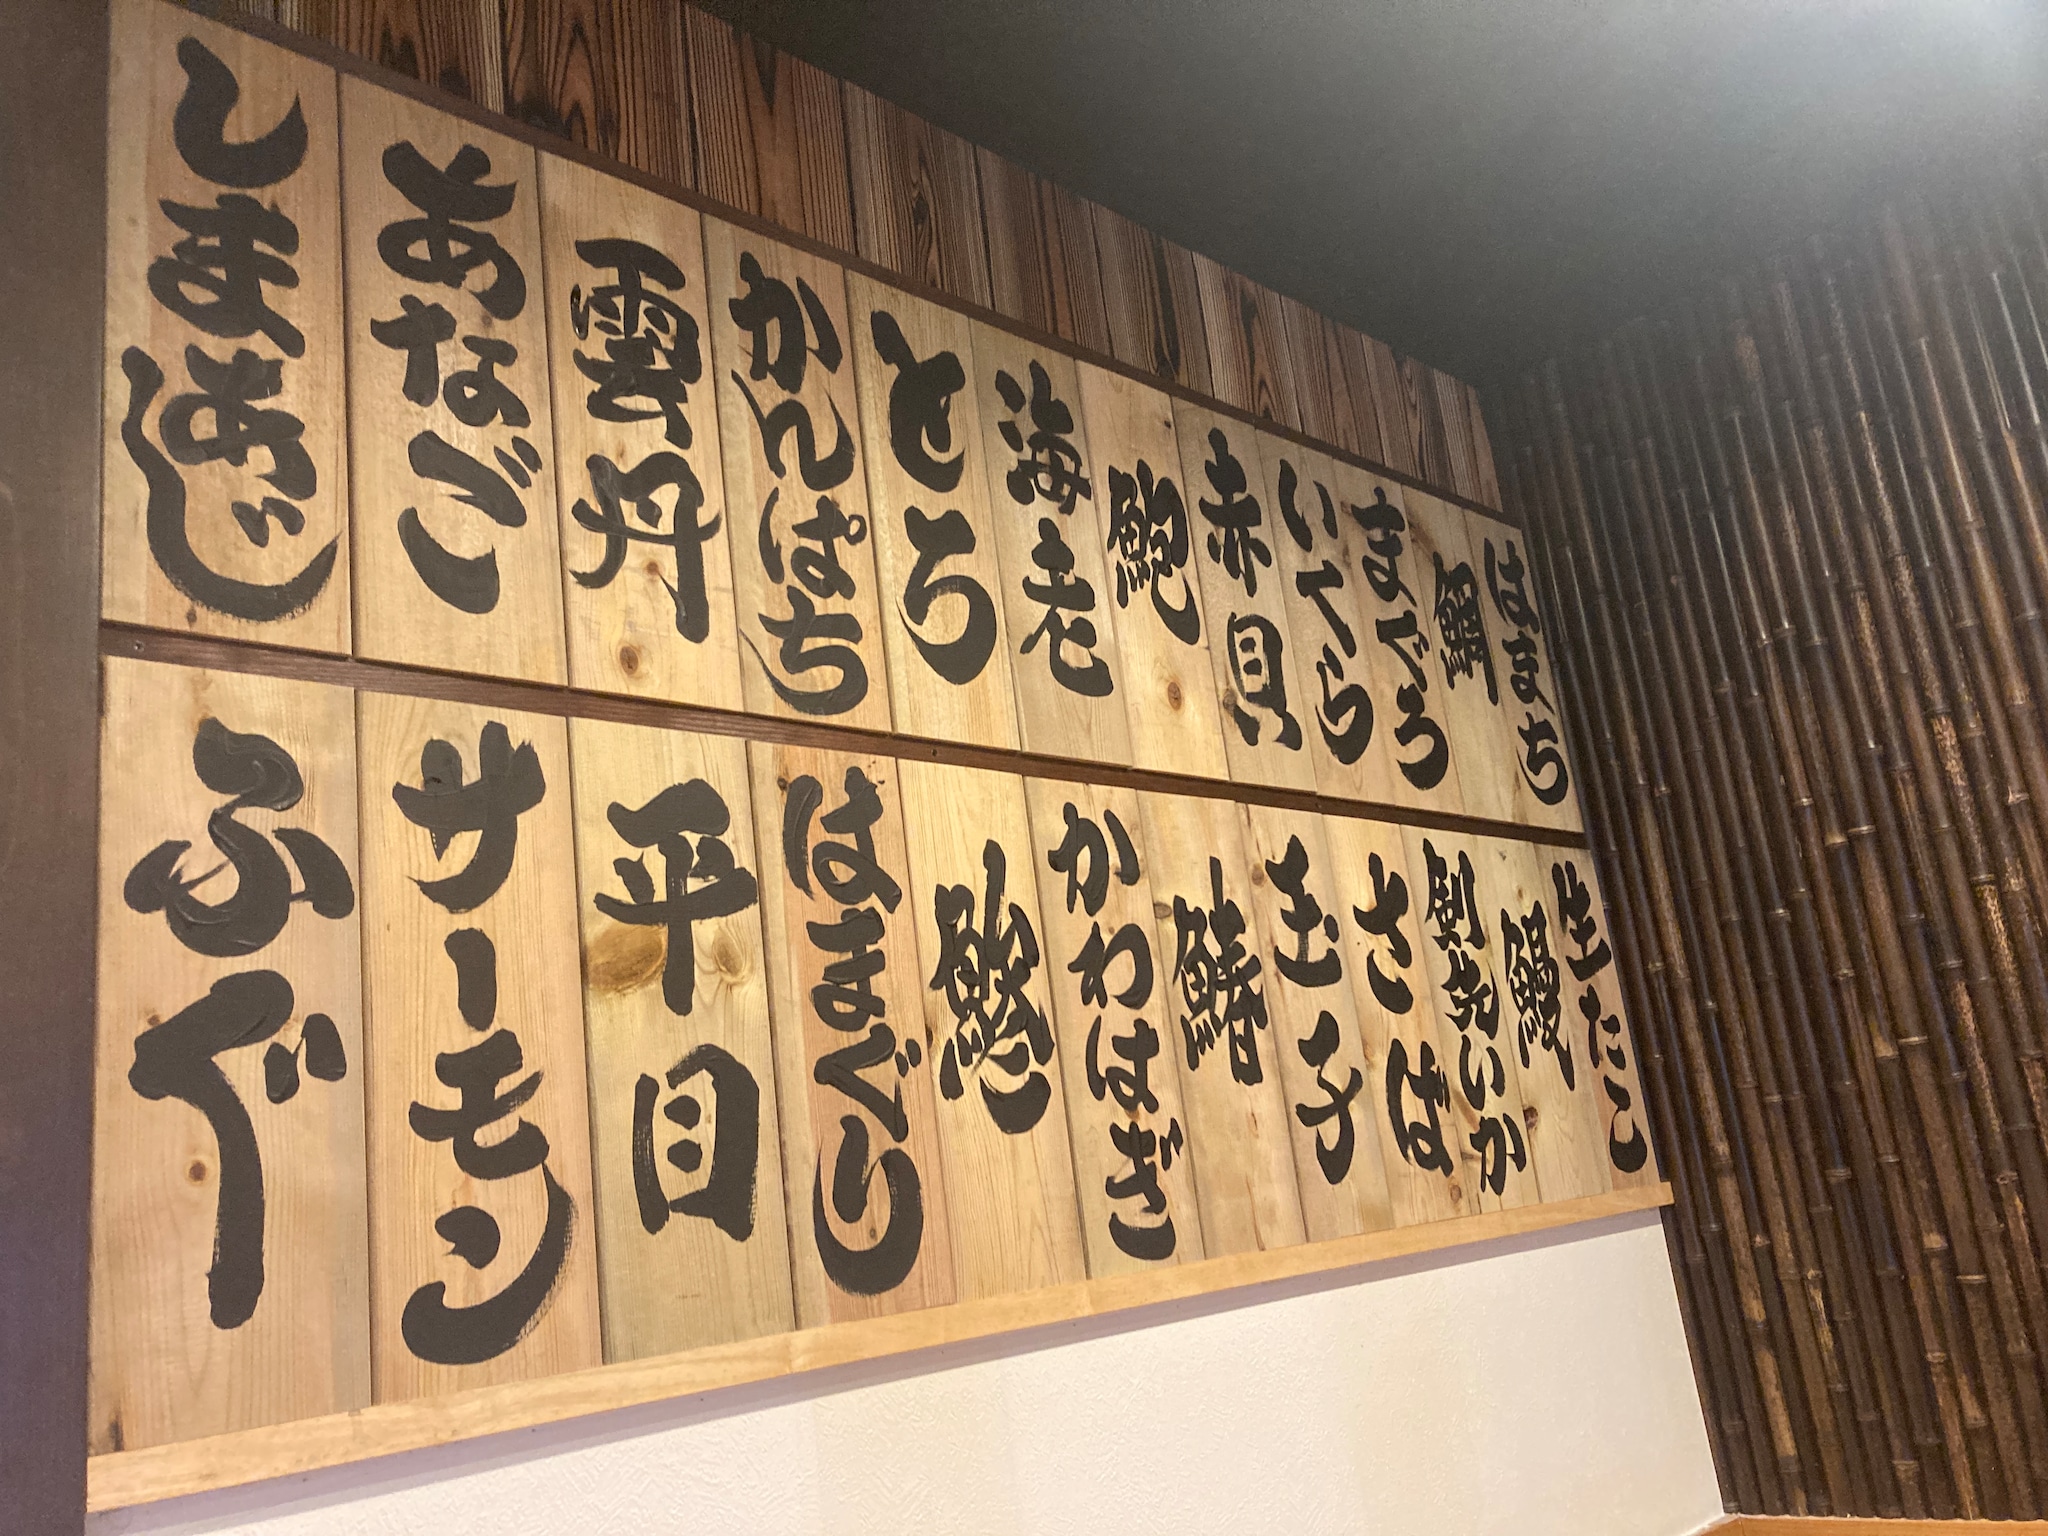 はまち
鯛
まぐろ
いくら
赤貝
鮑
海老
とろ
かんぱち
雲丹
あなご
しまあじ
生たこ
鰻
剣先いか
さば
玉子
鰆
かわはぎ
はまぐり
平目
サーモン
ふぐ